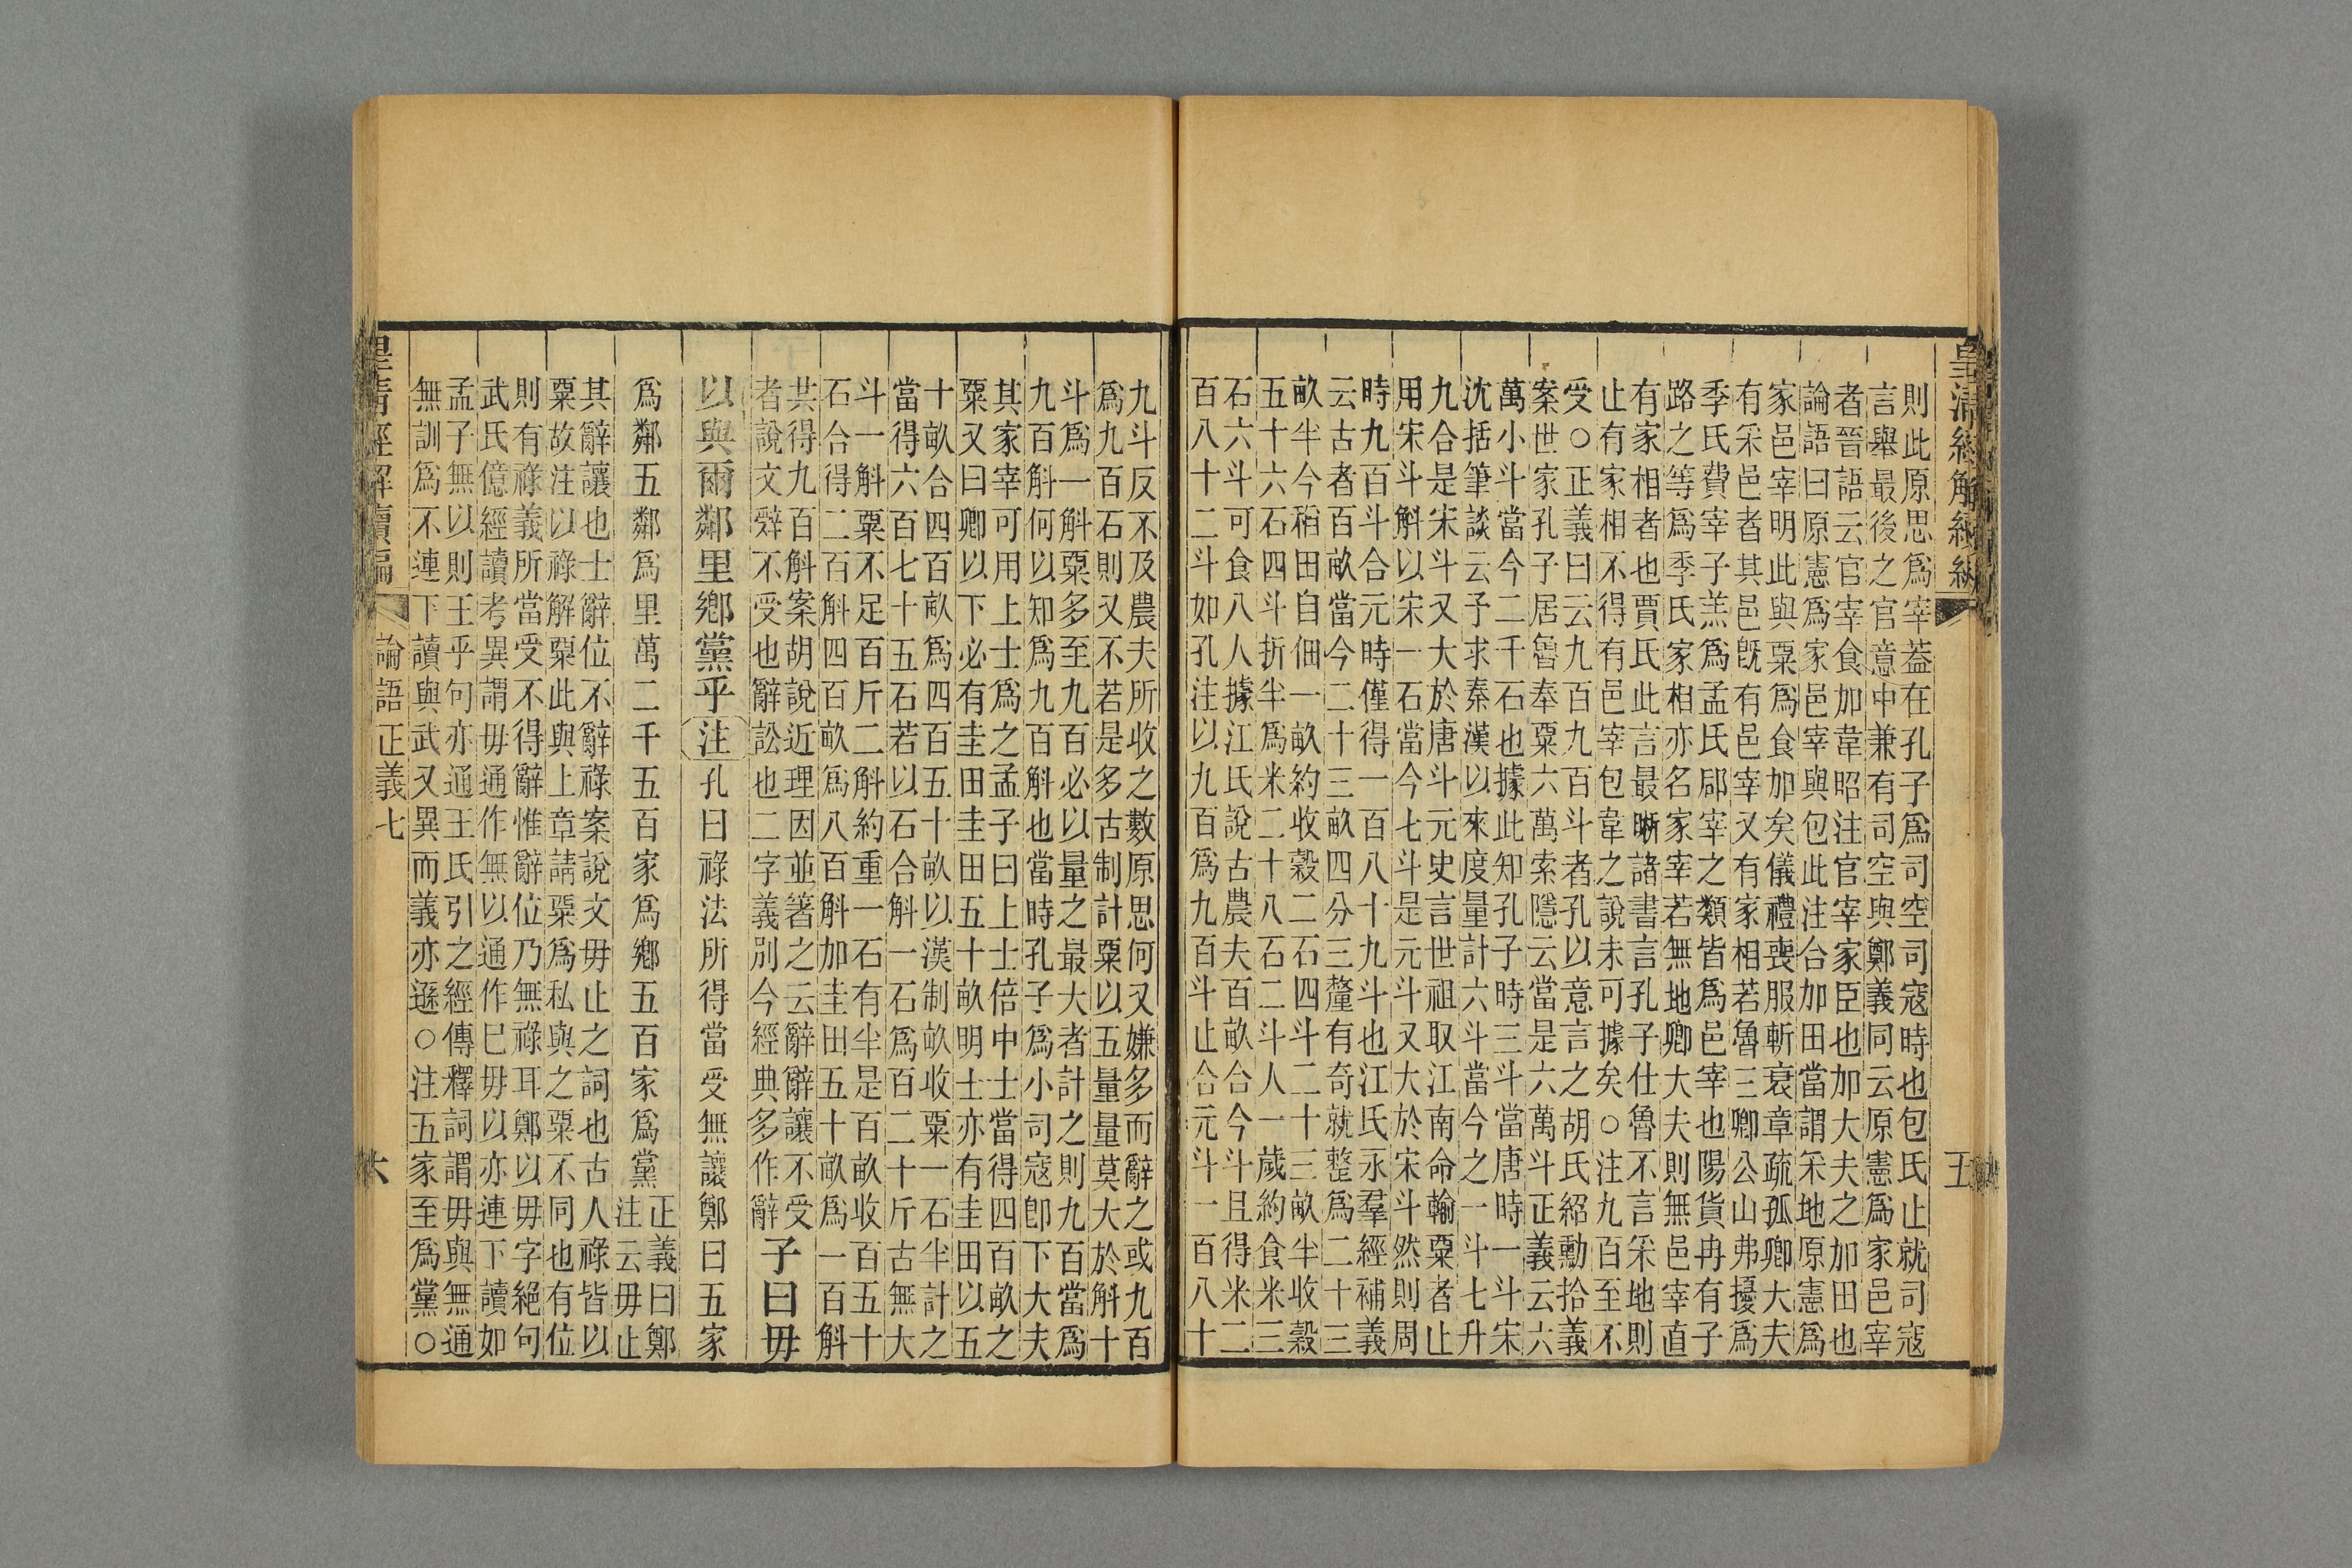 皇清經解續編
五
則此原思爲宰葢在孔子爲司空司寇時也包氏止就司寇
言舉最後之官意中兼有司空與鄭義同云原憲爲家邑宰
者晉語云官宰食加韋昭注官宰家臣也加大夫之加田也
論語曰原憲爲家邑宰與包此注合加田當謂采地原憲爲
家邑宰明此與粟爲食加矣儀禮喪服斬衰章疏孤卿大夫
有采邑者其邑旣有邑宰又有家相若魯三卿公山弗擾爲
季氏費宰子羔爲孟氏郈宰之類皆爲邑宰也陽貨冉有子
路之等爲季氏家相亦名家宰若無地卿大夫則無邑宰直
有家相者也賈氏此言最晰諸書言孔子仕魯不言采地則
止有家相不得有邑宰包韋之說未可據矣○注九百至不
受○正義曰云九百九百斗者孔以意言之胡氏紹勳拾義
案世家孔子居魯奉粟六萬索隱云當是六萬斗正義云六
萬小斗當今二千石也據此知孔子時三斗當唐時一斗宋
沈括筆談云予求秦漢以來度量計六斗當今之一斗七升
九合是宋斗又大於唐斗元史言世祖取江南命輸粟者止
用宋斗斛以宋一石當今七斗是元斗又大於宋斗然則周
時九百斗合元時僅得一百八十九斗也江氏永羣經補義
云古者百畝當今二十三畝四分三釐有奇就整爲二十三
畝半今稻田自佃一畝約收穀二石四斗二十三畝半收穀
五十六石四斗折半爲米二十八石二斗人一歲約食米三
石六斗可食八人據江氏說古農夫百畝合今斗且得米二
百八十二斗如孔注以九百爲九百斗止合元斗一百八十
九斗反不及農夫所收之數原思何又嫌多而辭之或九百
爲九百石則又不若是多古制計粟以五量量莫大於斛十
斗爲一斛粟多至九百必以量之最大者計之則九百當爲
九百斛何以知爲九百斛也當時孔子爲小司寇卽下大夫
其家宰可用上士爲之孟子曰上士倍中士當得四百畝之
粟又曰卿以下必有圭田圭田五十畝明士亦有圭田以五
十畝合四百畝爲四百五十畝以漢制畝收粟一石半計之
當得六百七十五石若以石合斛一石爲百二十斤古無大
斗一斛粟不足百斤二斛約重一石有半是百畝收百五十
石合得二百斛四百畝爲八百斛加圭田五十畝爲一百斛
共得九百斛案胡說近理因並箸之云辭辭讓不受
者說文辤不受也辭訟也二字義別今經典多作辭
子曰毋
以與爾鄰里鄉黨乎
注
孔曰祿法所得當受無讓鄭曰五家
爲鄰五鄰爲里萬二千五百家爲鄉五百家爲黨
正義曰鄭
注云毋止
其辭讓也士辭位不辭祿案說文毋止之詞也古人祿皆以
粟故注以祿解粟此與上章請粟爲私與之粟不同也有位
則有祿義所當受不得辭惟辭位乃無祿耳鄭以毋字絕句
武氏億經讀考異謂毋通作無以通作巳毋以亦連下讀如
孟子無以則王乎句亦通王氏引之經傳釋詞謂毋與無通
無訓爲不連下讀與武又異而義亦遜○注五家至爲黨○
皇清經解續編
論語正義七
六